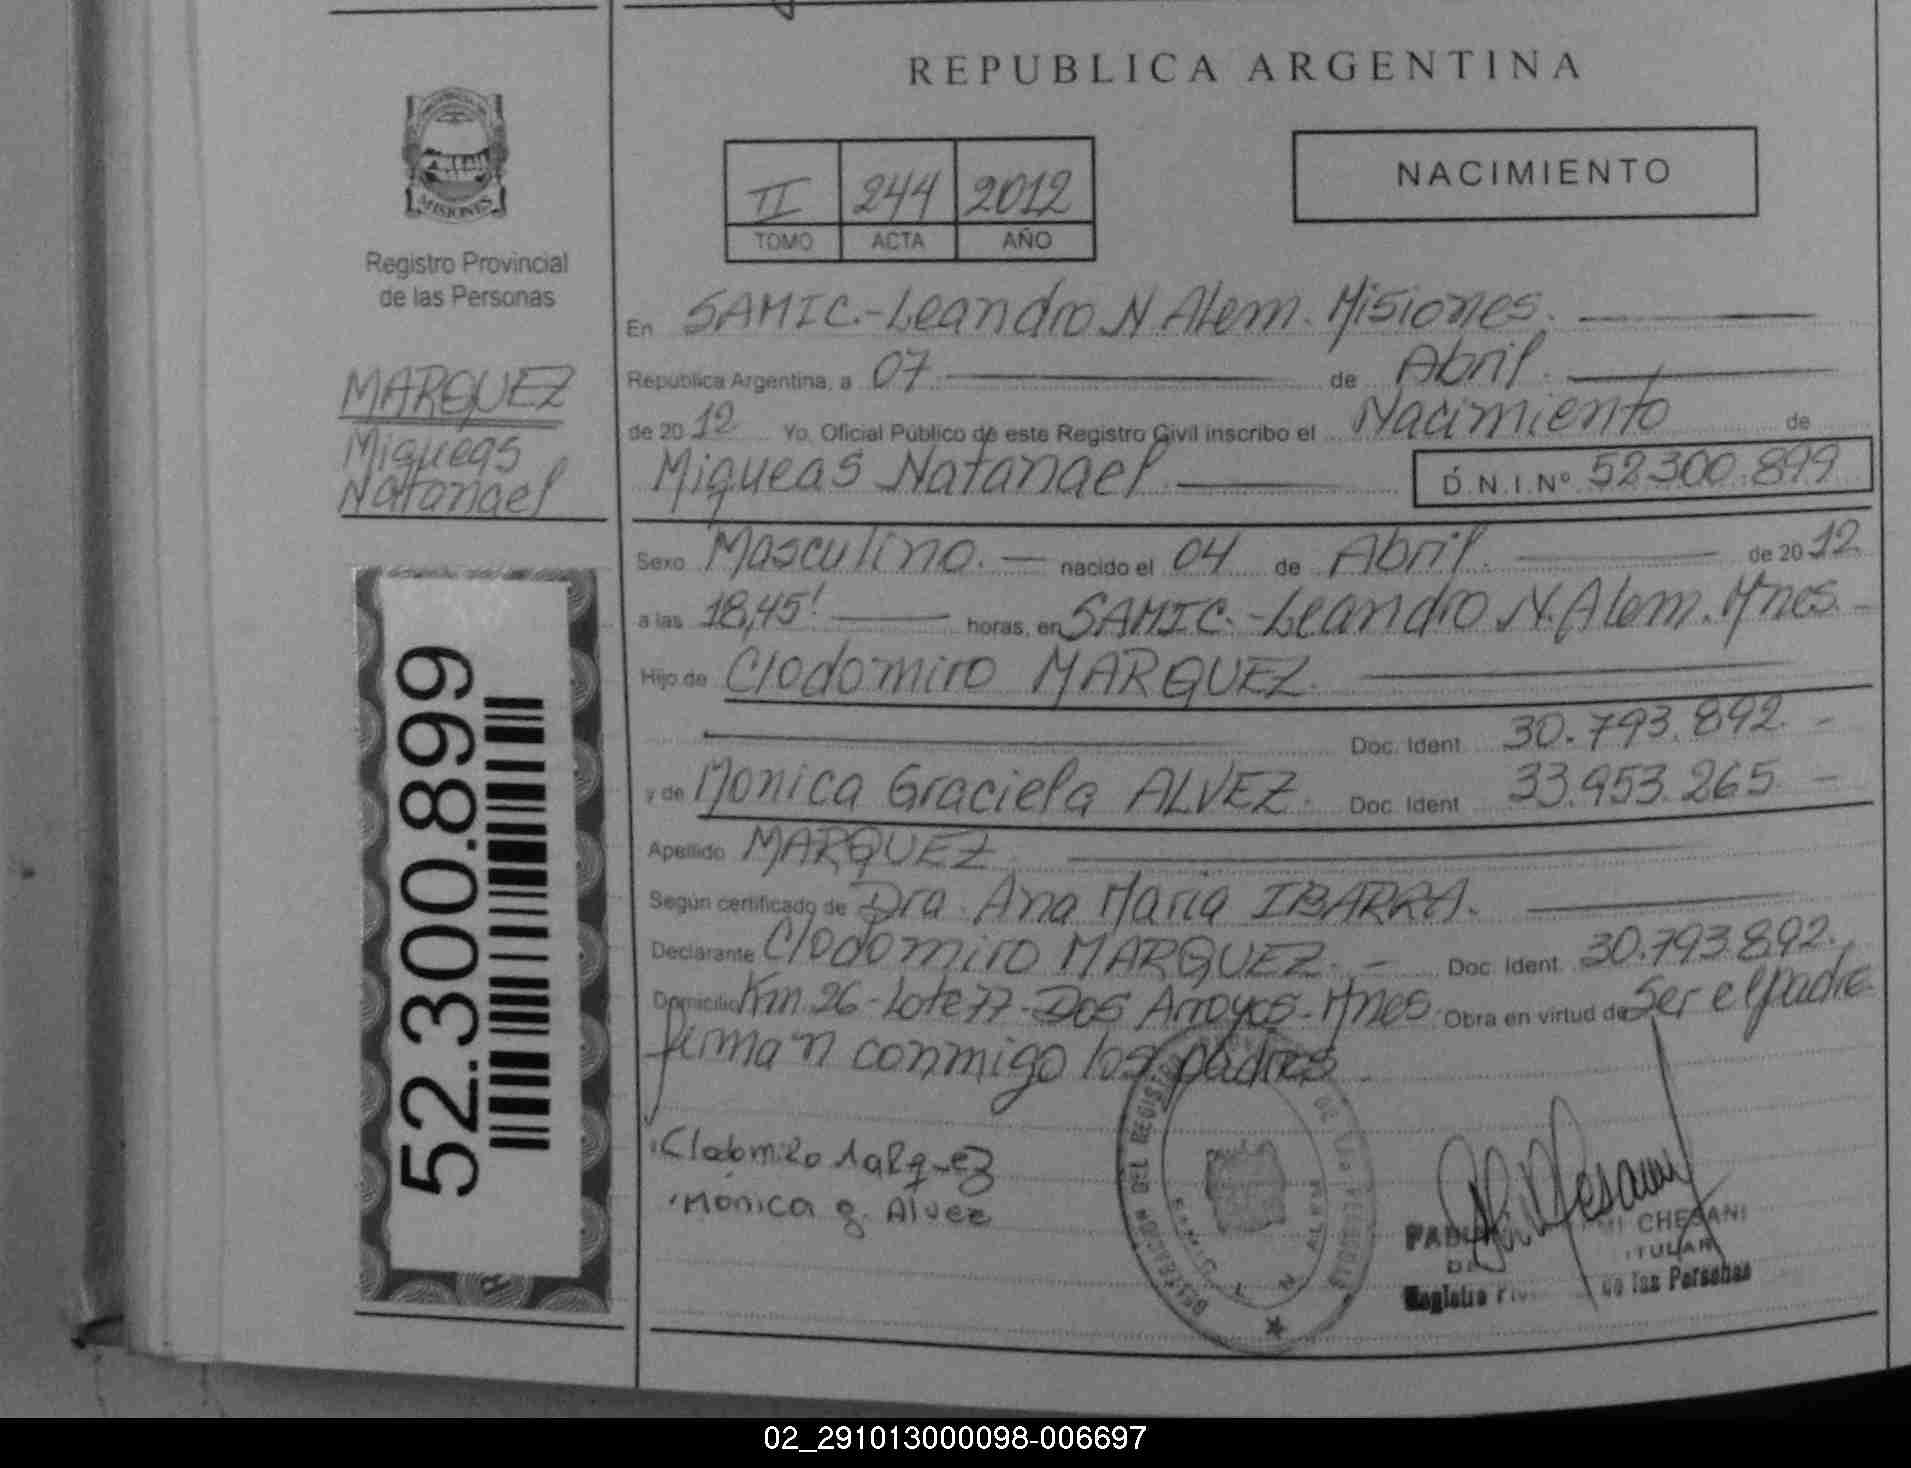 REPUBLICA ARGENTINA
MISIONES
Registro Provincial
de las Personas
II 244 2012
TOMO ACTA AÑO
NACIMIENTO
MARQUEZ
Miqueas
Natanael
52.300.899
En SAMIC.-Leandro N Alem. Misiones.
República Argentina, a 07 de Abril.
de 2012 Yo, Oficial Público de este Registro Civil inscribo el Nacimiento de
Miqueas Natanael D.N.I.Nº 52.300.899
Sexo Masculino. nacido el 04 de Abril. de 2012.
a las 18,45' horas, en SAMIC.-Leandro N. Alem. Mnes.
Hijo de Clodomiro MARQUEZ.
Doc. Ident. 30.793.892.-
y de Monica Graciela ALVEZ. Doc. Ident. 33.953.265-
Apellido MARQUEZ.
Según certificado de Dra. Ana Maria IBARRA.
Declarante Clodomiro MARQUEZ.- Doc. Ident. 30.793.892.
Domicilio Km. 26-Lote 77-Dos Arroyos-Mnes. Obra en virtud de Ser el padre
firman conmigo los padres
Clodomiro Marquez
Monica g. Alvez
DEL REGISTRO DE LAS PERSONAS
CHESANI
TITULAR
Registro de las Personas
02_291013000098-006697